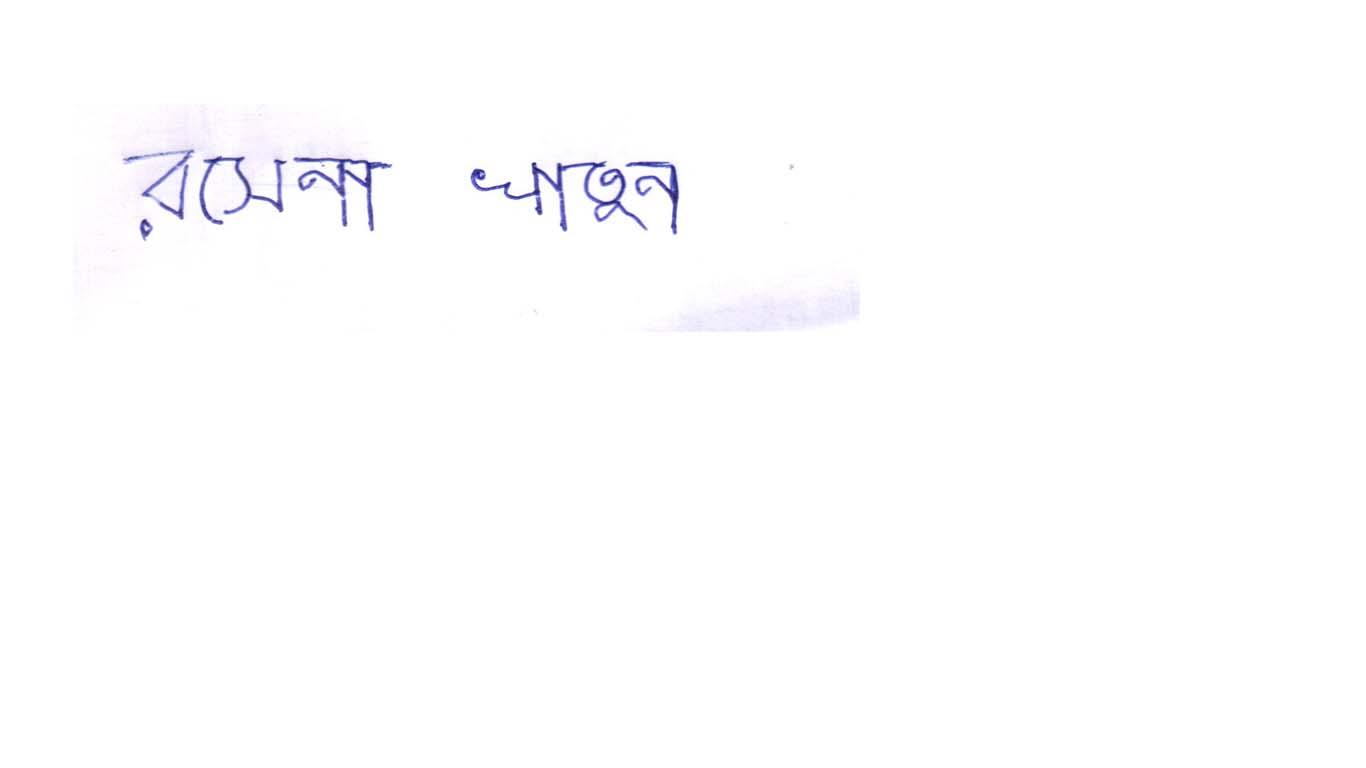 রসেনা খাতুন